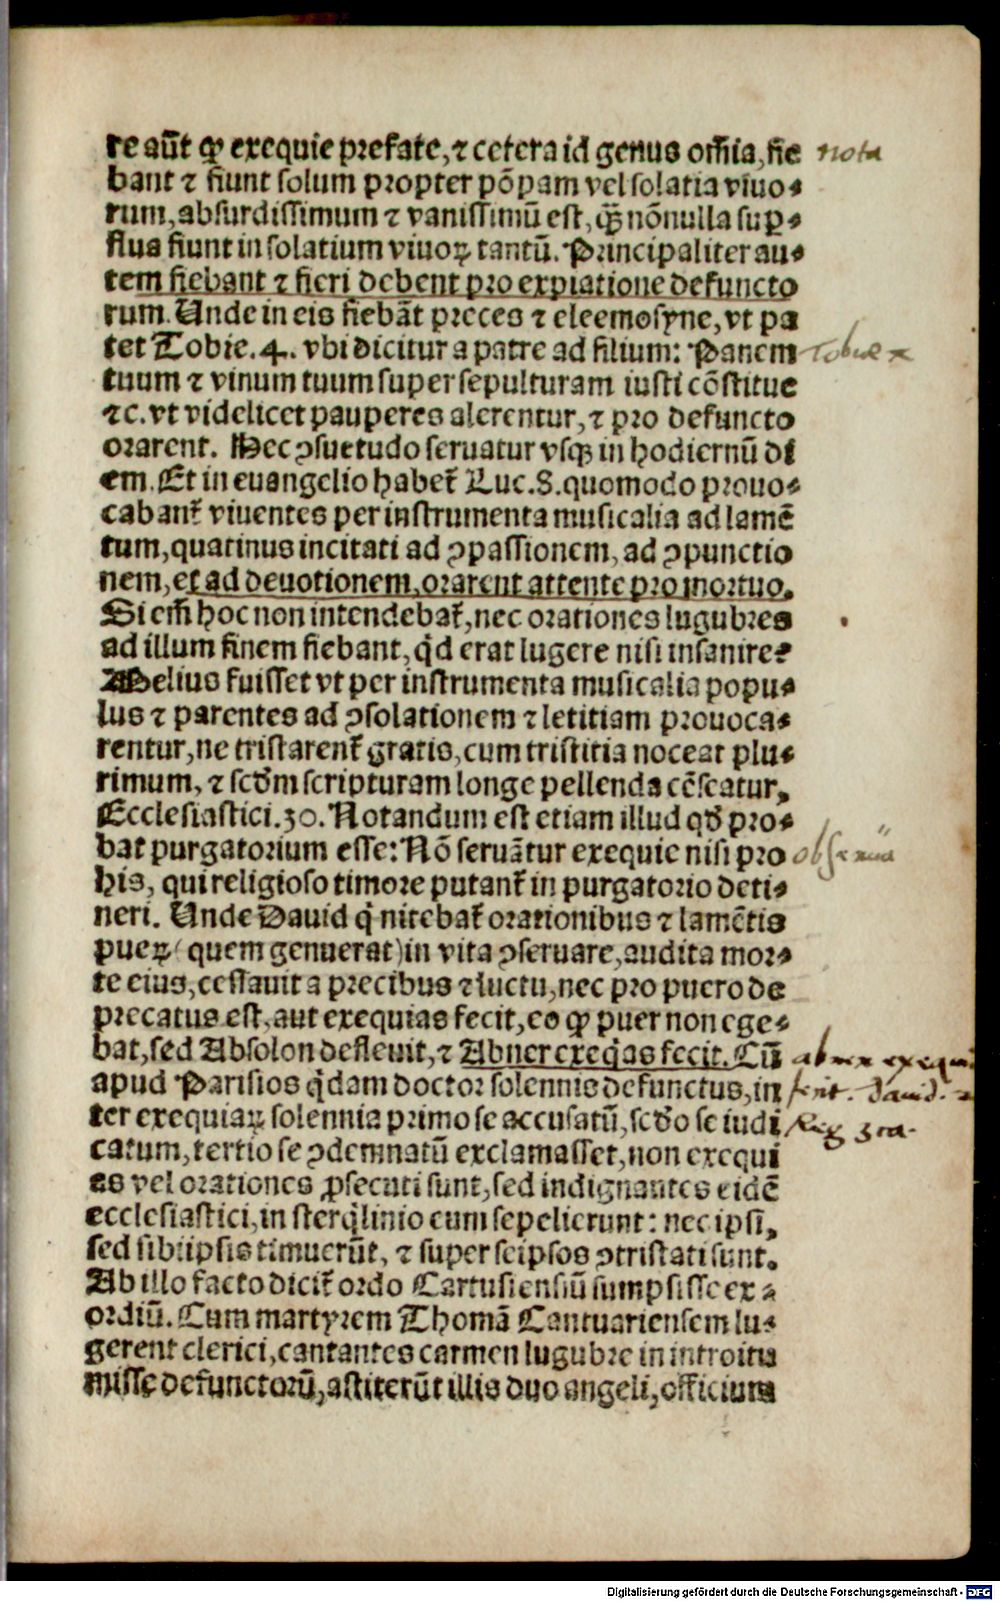 re aūt ꝙ exequie prefate, ⁊ cetera id genus om̄ia, fie nota
bant ⁊ fiunt solum propter pōpam vel solatia viuo⸗
rum, absurdissimum ⁊ vanissimū est, ꝙ̄ nōnulla suꝑ⸗
flua fiunt in solatium viuoꝝ tantū. Principaliter au⸗
tem fiebant ⁊ fieri debent pro expiatione defuncto
rum. Unde in eis fiebāt preces ⁊ eleemosyne, vt pa
tet Tobie. 4. vbi dicitur a patre ad filium: Panem Tobie
tuum ⁊ vinum tuum super sepulturam iusti cōstitue
⁊c. vt videlicet pauperes alerentur, ⁊ pro defuncto
orarent. Hec ꝯsuetudo seruatur vsqꝫ in hodiernū di
em. Et in euangelio habet᷑ Luc. 8. quomodo prouo⸗
cabant᷑ viuentes per instrumenta musicalia ad lamē
tum, quatinus incitati ad ꝯpassionem, ad ꝯpunctio
nem, et ad deuotionem, orarent attente pro mortuo.
Si em̄ hoc non intendebat᷑, nec orationes lugubres
ad illum finem fiebant, qd̓ erat lugere nisi insanire?
Melius fuisset vt per instrumenta musicalia popu⸗
lus ⁊ parentes ad ꝯsolationem ⁊ letitiam prouoca⸗
rentur, ne tristarent᷑ gratis, cum tristitia noceat plu⸗
rimum, ⁊ scd̓m scripturam longe pellenda cēseatur,
Ecclesiastici. 30. Notandum est etiam illud qd̓ pro⸗
bat purgatorium esse: Nō seruātur exequie nisi pro
his, qui religioso timore putant᷑ in purgatorio deti⸗
neri. Unde Dauid q̇ nitebat᷑ orationibus ⁊ lamētis
pueꝝ (quem genuerat) in vita ꝯseruare, audita mor⸗
te eius, cessauit a precibus ⁊ luctu, nec pro puero de
precatus est, aut exequias fecit, eo ꝙ puer non ege⸗
bat, sed Absolon defleuit, ⁊ Abner exeq̇as fecit. Cū abner exequi
apud Parisios q̇dam doctor solennis defunctus, in fecit. Dauid. 2
ter exequiaꝝ solennia primo se accusatū, scd̓o se iudi Reg 3ia.
catum, tertio se ꝯdemnatū exclamasset, non exequi
as vel orationes ꝓsecuti sunt, sed indignantes eidē
ecclesiastici, in sterq̇linio eum sepelierunt: nec ipsi,
sed sibiipsis timuerūt, ⁊ super seipsos ꝯtristati sunt.
Ab illo facto dicit᷑ ordo Cartusiensiū sumpsisse ex⸗
ordiū. Cum martyrem Thomā Cantuariensem lu⸗
gerent clerici, cantantes carmen lugubre in introitu
misse defunctorū, astiterūt illis duo angeli, officium
Digitalisierung gefördert durch die Deutsche Forschungsgemeinschaft - DFG